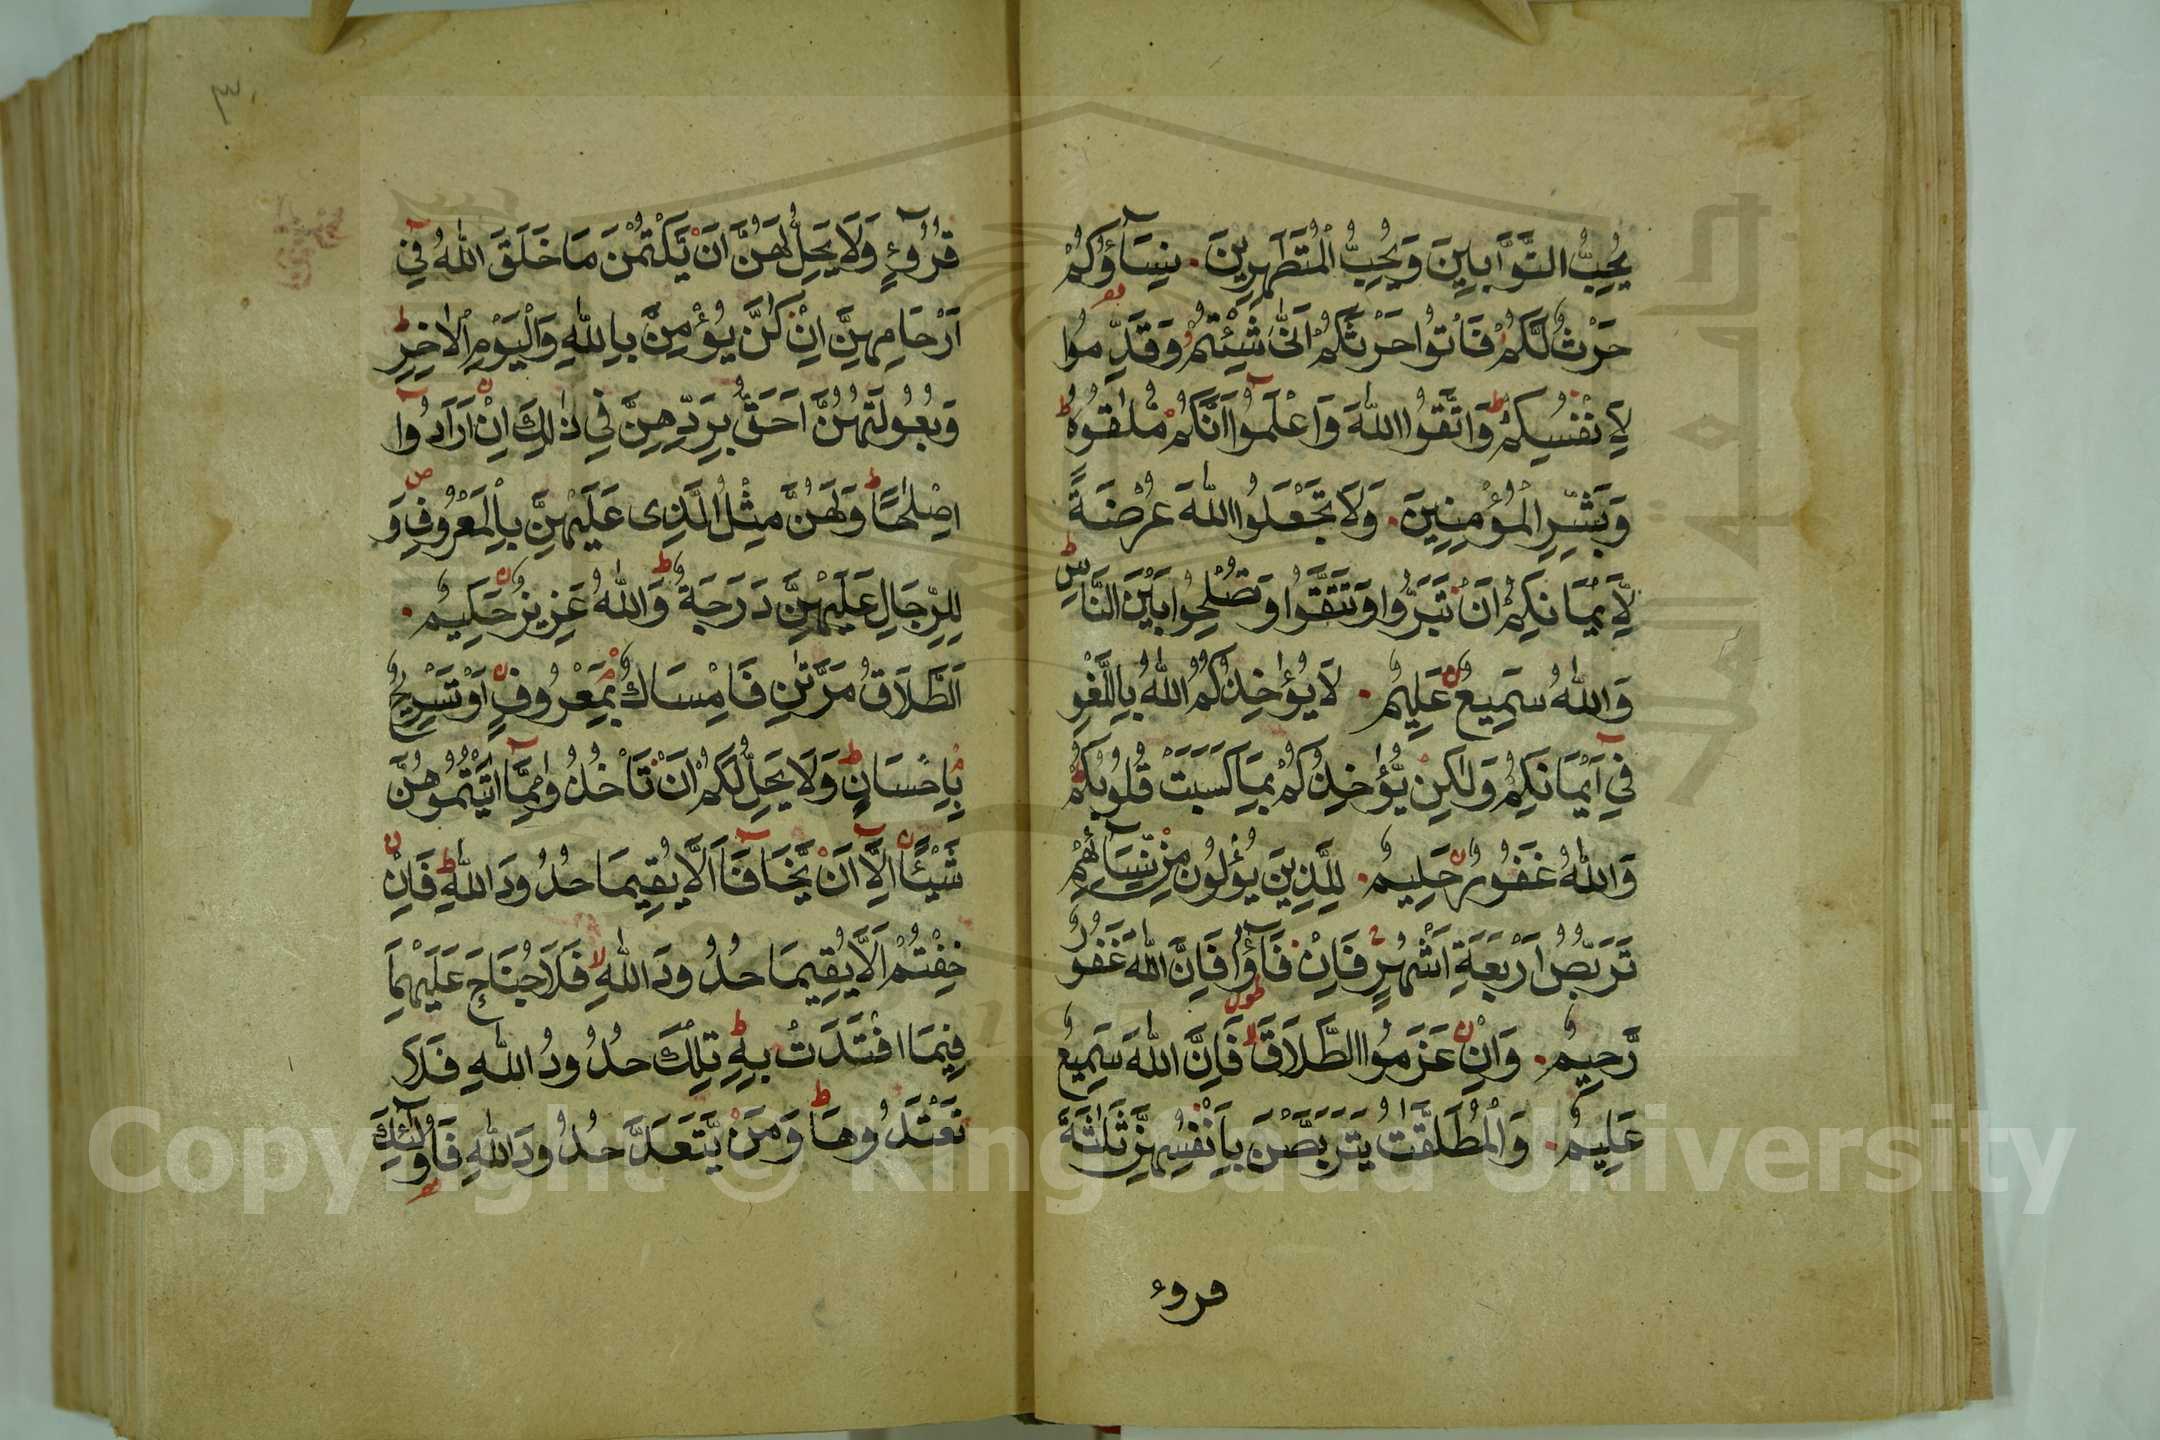 يُحِبُّ التَّوَّابِينَ وَيُحِبُّ الْمُتَطَهِّرِينَ. نِسَآؤُكُمْ
حَرْثٌ لَّكُمْ فَأْتُوا حَرْثَكُمْ اَنّٰى شِئْتُمْ وَقَدِّمُوا
لِاَنْفُسِكُمْ ط وَاتَّقُوا اللّٰهَ وَاعْلَمُوآ اَنَّكُمْ مُّلٰقُوْهُ ط
وَبَشِّرِ الْمُؤْمِنِينَ. وَلَا تَجْعَلُوا اللّٰهَ عُرْضَةً
لِّاَيْمَانِكُمْ اَنْ تَبَرُّوا وَتَتَّقُوا وَتُصْلِحُوا بَيْنَ النَّاسِ ط
وَاللّٰهُ سَمِيعٌ عَلِيمٌ. لَا يُؤَاخِذُكُمُ اللّٰهُ بِاللَّغْوِ
فِيٓ اَيْمَانِكُمْ وَلٰكِنْ يُّؤَاخِذُكُمْ بِمَا كَسَبَتْ قُلُوبُكُمْ
وَاللّٰهُ غَفُورٌ حَلِيمٌ. لِلَّذِينَ يُؤْلُونَ مِنْ نِّسَآئِهِمْ
تَرَبُّصُ اَرْبَعَةِ اَشْهُرٍ فَاِنْ فَآؤُا فَاِنَّ اللّٰهَ غَفُورٌ
رَّحِيمٌ. وَاِنْ عَزَمُوا الطَّلَاقَ فَاِنَّ اللّٰهَ سَمِيعٌ
عَلِيمٌ. وَالْمُطَلَّقٰتُ يَتَرَبَّصْنَ بِاَنْفُسِهِنَّ ثَلٰثَةَ
قروء
٣
قُرُوٓءٍ وَلَا يَحِلُّ لَهُنَّ اَنْ يَّكْتُمْنَ مَا خَلَقَ اللّٰهُ فِيٓ
اَرْحَامِهِنَّ اِنْ كُنَّ يُؤْمِنَّ بِاللّٰهِ وَالْيَوْمِ الْاٰخِرِ ط
وَبُعُولَتُهُنَّ اَحَقُّ بِرَدِّهِنَّ فِي ذٰلِكَ اِنْ اَرَادُوآ
اِصْلٰحًا ط وَلَهُنَّ مِثْلُ الَّذِى عَلَيْهِنَّ بِالْمَعْرُوفِ ص وَ
لِلرِّجَالِ عَلَيْهِنَّ دَرَجَةٌ ط وَاللّٰهُ عَزِيزٌ حَكِيمٌ.
اَلطَّلَاقُ مَرَّتٰنِ فَاِمْسَاكٌ بِمَعْرُوفٍ اَوْ تَسْرِيحٌ
بِاِحْسَانٍ ط وَلَا يَحِلُّ لَكُمْ اَنْ تَأْخُذُوا مِمَّآ اٰتَيْتُمُوهُنَّ
شَيْئًا اِلَّآ اَنْ يَّخَافَآ اَلَّا يُقِيمَا حُدُودَ اللّٰهِ ط فَاِنْ
خِفْتُمْ اَلَّا يُقِيمَا حُدُودَ اللّٰهِ لا فَلَا جُنَاحَ عَلَيْهِمَا
فِيمَا افْتَدَتْ بِهِ ط تِلْكَ حُدُودُ اللّٰهِ فَلَا
تَعْتَدُوهَا ط وَمَنْ يَّتَعَدَّ حُدُودَ اللّٰهِ فَاُولٰٓئِكَ
Copyright © King Saud University